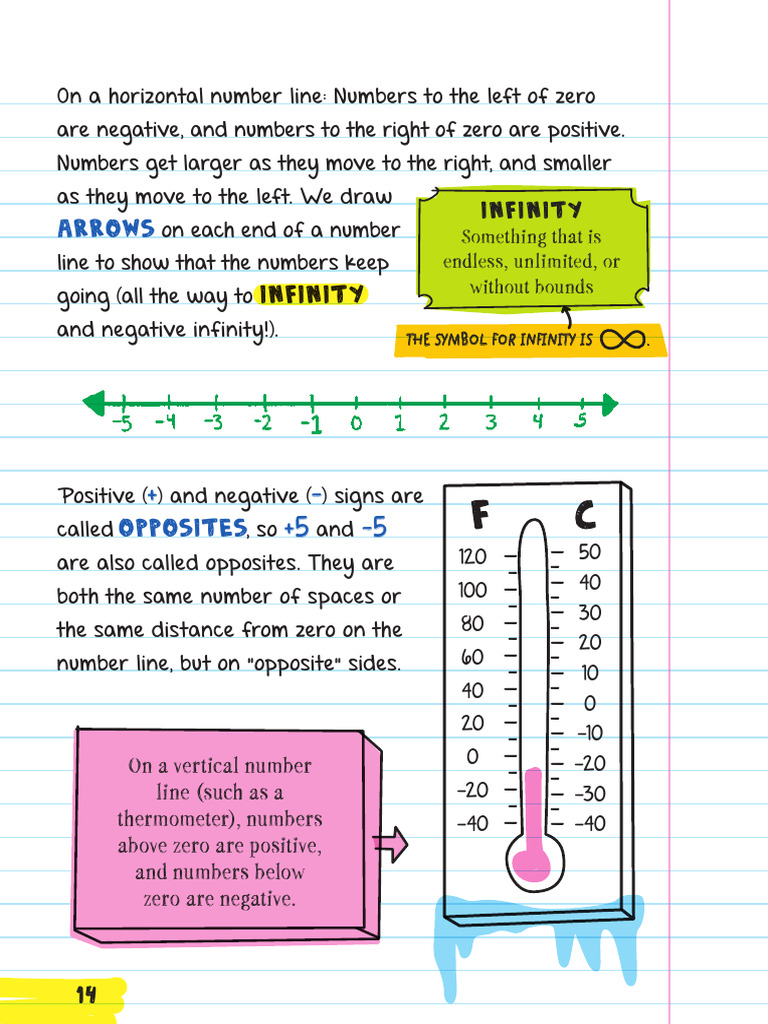 On a horizontal number line: Numbers to the left of zero
are negative, and numbers to the right of zero are positive.
Numbers get larger as they move to the right, and smaller
as they move to the left. We draw
ARROWS on each end of a number
line to show that the numbers keep
going (all the way to INFINITY
and negative infinity!).
INFINITY
Something that is
endless, unlimited, or
without bounds
THE SYMBOL FOR INFINITY IS ∞.
-5 -4 -3 -2 -1 0 1 2 3 4 5
Positive (+) and negative (–) signs are
called OPPOSITES, so +5 and -5
are also called opposites. They are
both the same number of spaces or
the same distance from zero on the
number line, but on "opposite" sides.
On a vertical number
line (such as a
thermometer), numbers
above zero are positive,
and numbers below
zero are negative.
F C
120 50
100 40
80 30
60 20
40 10
20 0
0 -10
-20 -20
-40 -30
-40
14